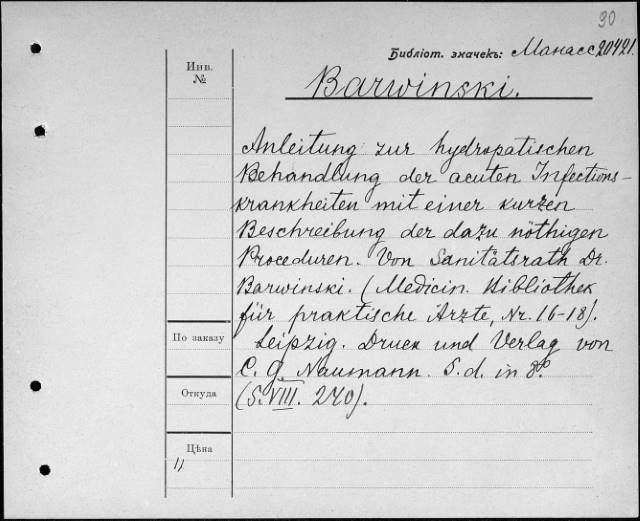 90
Библіот. значекъ: Манасс 20421.
Инв.
№
Barwinski.
Anleitung zur hydropatischen
Behandlung der acuten Infections-
krankheiten mit einer kurzen
Beschreibung der dazu nöthigen
Proceduren. Von Sanitätsrath Dr.
Barwinski. (Medicin. Bibliothek
für praktische Ärzte, Nr. 16-18).
Leipzig. Druck und Verlag von
C. G. Naumann. S. d. in 8º
(S. VIII. 240).
По заказу
Откуда
Цѣна